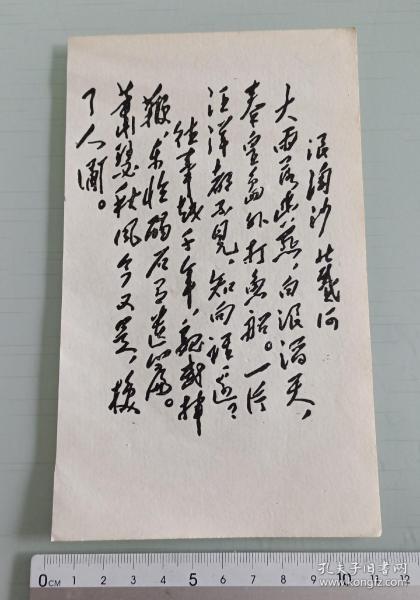 浪淘沙 北戴河
大雨落幽燕，白浪滔天，
秦皇岛外打鱼船。一片
汪洋都不见，知向谁边？
往事越千年，魏武挥
鞭，东临碣石有遗篇。
萧瑟秋风今又是，换
了人间。
0CM 5 6 7 8 9 10 11 12
孔夫子旧书网